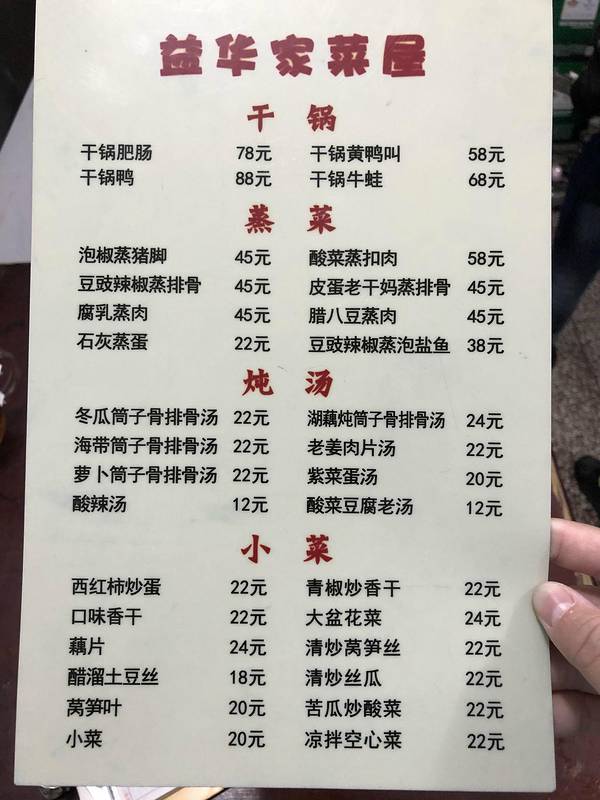 益华家菜屋
干锅
干锅肥肠 78元 干锅黄鸭叫 58元
干锅鸭 88元 干锅牛蛙 68元
蒸菜
泡椒蒸猪脚 45元 酸菜蒸扣肉 58元
豆豉辣椒蒸排骨 45元 皮蛋老干妈蒸排骨 45元
腐乳蒸肉 45元 腊八豆蒸肉 45元
石灰蒸蛋 22元 豆豉辣椒蒸泡盐鱼 38元
炖汤
冬瓜筒子骨排骨汤 22元 湖藕炖筒子骨排骨汤 24元
海带筒子骨排骨汤 22元 老姜肉片汤 22元
萝卜筒子骨排骨汤 22元 紫菜蛋汤 20元
酸辣汤 12元 酸菜豆腐老汤 12元
小菜
西红柿炒蛋 22元 青椒炒香干 22元
口味香干 22元 大盆花菜 24元
藕片 24元 清炒莴笋丝 22元
醋溜土豆丝 18元 清炒丝瓜 22元
莴笋叶 20元 苦瓜炒酸菜 22元
小菜 20元 凉拌空心菜 22元